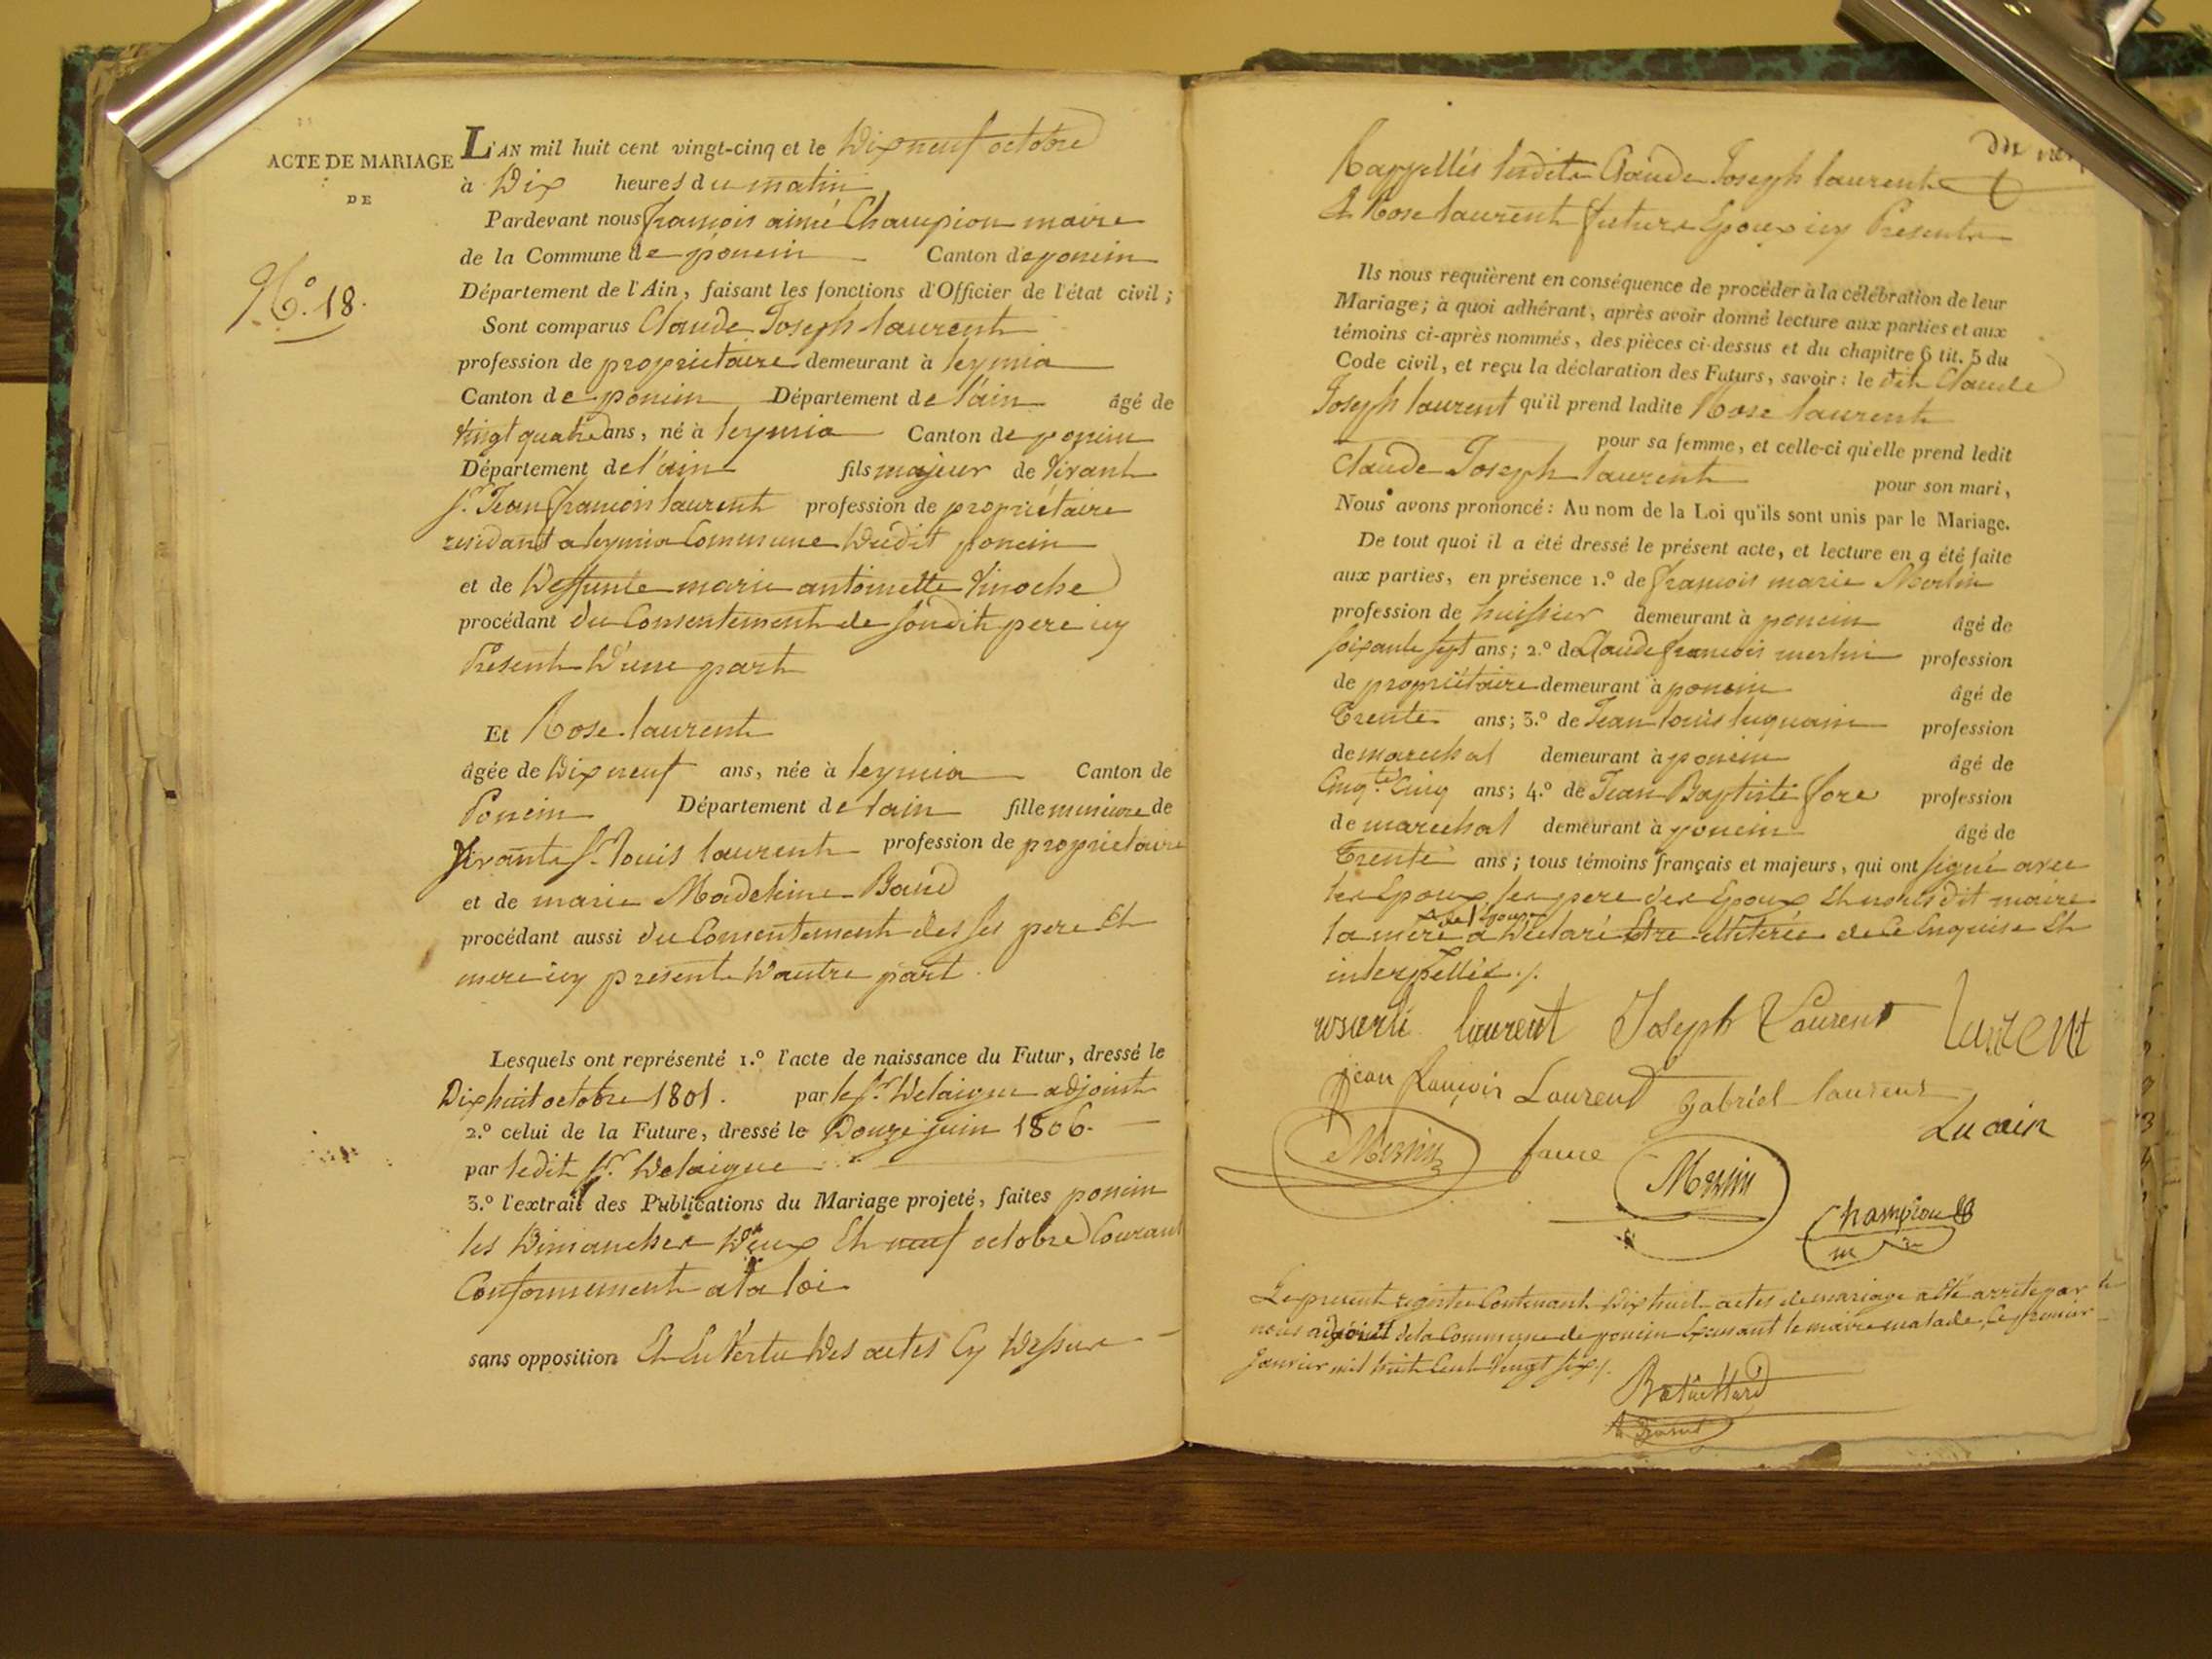 ACTE DE MARIAGE
DE
N.° 18.
L'AN mil huit cent vingt-cinq et le Dix neuf octobre
à Dix heures du matin
Pardevant nous françois aimé Champion maire
de la Commune de poncin Canton de poncin
Département de l'Ain, faisant les fonctions d'Officier de l'état civil;
Sont comparus Claude Joseph laurent
profession de proprietaire demeurant à leymia
Canton de poncin Département de l'ain âgé de
vingt quatre ans, né à leymia Canton de poncin
Département de l'ain fils majeur de vivant
sr. Jean françois laurent profession de propriétaire
residant a leymia Commune dudit poncin
et de deffunte marie antoinette
procédant du Consentement de sondit pere icy
Present d'une part
Et Rose laurent
âgée de Dix neuf ans, née à leymia Canton de
Poncin Département de lain fille mineure de
vivants sr. louis laurent profession de proprietaire
et de marie Madeleine Baud
procédant aussi du Consentement des ses pere Et
mere icy present d'autre part
Lesquels ont représenté 1.° l'acte de naissance du Futur, dressé le
Dix huit octobre 1801. par le sr. Delaigue adjoint
2.° celui de la Future, dressé le Douze juin 1806.
par ledit sr. Delaigue
3.° l'extrait des Publications du Mariage projeté, faites poncin
les Dimanches Deux Et neuf octobre Courant
Conformement a la loi
sans opposition Et En Vertu des actes Cy dessus
Rappellés lesdits Claude Joseph laurent
Et Rose laurent future Epoux icy Presents
Ils nous requièrent en conséquence de procéder à la célébration de leur
Mariage; à quoi adhérant, après avoir donné lecture aux parties et aux
témoins ci-après nommés, des pièces ci-dessus et du chapitre 6 tit. 5 du
Code civil, et reçu la déclaration des Futurs, savoir: le dit Claude
Joseph laurent qu'il prend ladite Rose laurent
pour sa femme, et celle-ci qu'elle prend ledit
Claude Joseph laurent pour son mari,
Nous avons prononcé: Au nom de la Loi qu'ils sont unis par le Mariage.
De tout quoi il a été dressé le présent acte, et lecture en a été faite
aux parties, en présence 1.° de françois marie Merlin
profession de huissier demeurant à poncin âgé de
soixante sept ans; 2.° de Claude françois merlin profession
de propriétaire demeurant à poncin âgé de
Trente ans; 3.° de Jean louis luquain profession
de marechal demeurant à poncin âgé de
Cinqte. Cinq ans; 4.° de Jean Baptiste fore profession
de marechal demeurant à poncin âgé de
Trente ans; tous témoins français et majeurs, qui ont signé avec
les Epoux, les pere des Epoux Et nous dit maire
de l'épouse
la mere a declaré Etre illiterée de ce Enquise Et
interpellée./.
laurent Joseph Laurent laurent
jean francois Laurent gabriel laurent
Merlin faure Merlin Lucain
Champion
m re
Le present registre Contenant Dix huit actes de mariage a Eté arrêté par
nous adjoint de la Commune de poncin Exerçant le maire malade, Ce premier
Janvier mil huit Cent Vingt six./.